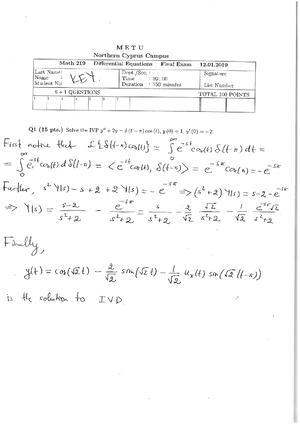 M E T U
Northern Cyprus Campus
Math 219 Differential Equations Final Exam 12.01.2019
Last Name: Dept./Sec.: Signature
Name : KEY. Time : 09:00
Student No Duration : 150 minutes List Number
6 + 1 QUESTIONS TOTAL 100 POINTS
1 2 3 4 5 6 7
Q1 (15 pts.) Solve the IVP y'' + 2y = δ(t − π) cos(t), y(0) = 1, y'(0) = −2.
First notice that L{δ(t-π)cos(t)} = ∫₀^∞ e^{-st} cos(t) δ(t-π) dt =
= ∫₀^∞ e^{-st} cos(t) dδ(t-π) = < e^{-st} cos(t), δ(t-π) > = e^{-sπ} cos(π) = -e^{-sπ}
Further, s² Y(s) - s + 2 + 2 Y(s) = -e^{-sπ} ⇒ (s²+2) Y(s) = s-2-e^{-sπ}
⇒ Y(s) = (s-2)/(s²+2) - e^{-sπ}/(s²+2) = s/(s²+2) - 2/√2 √2/(s²+2) - 1/√2 e^{-sπ}√2/(s²+2)
Finally,
y(t) = cos(√2 t) - 2/√2 sin(√2 t) - 1/√2 u_π(t) sin(√2 (t-π))
is the solution to IVP